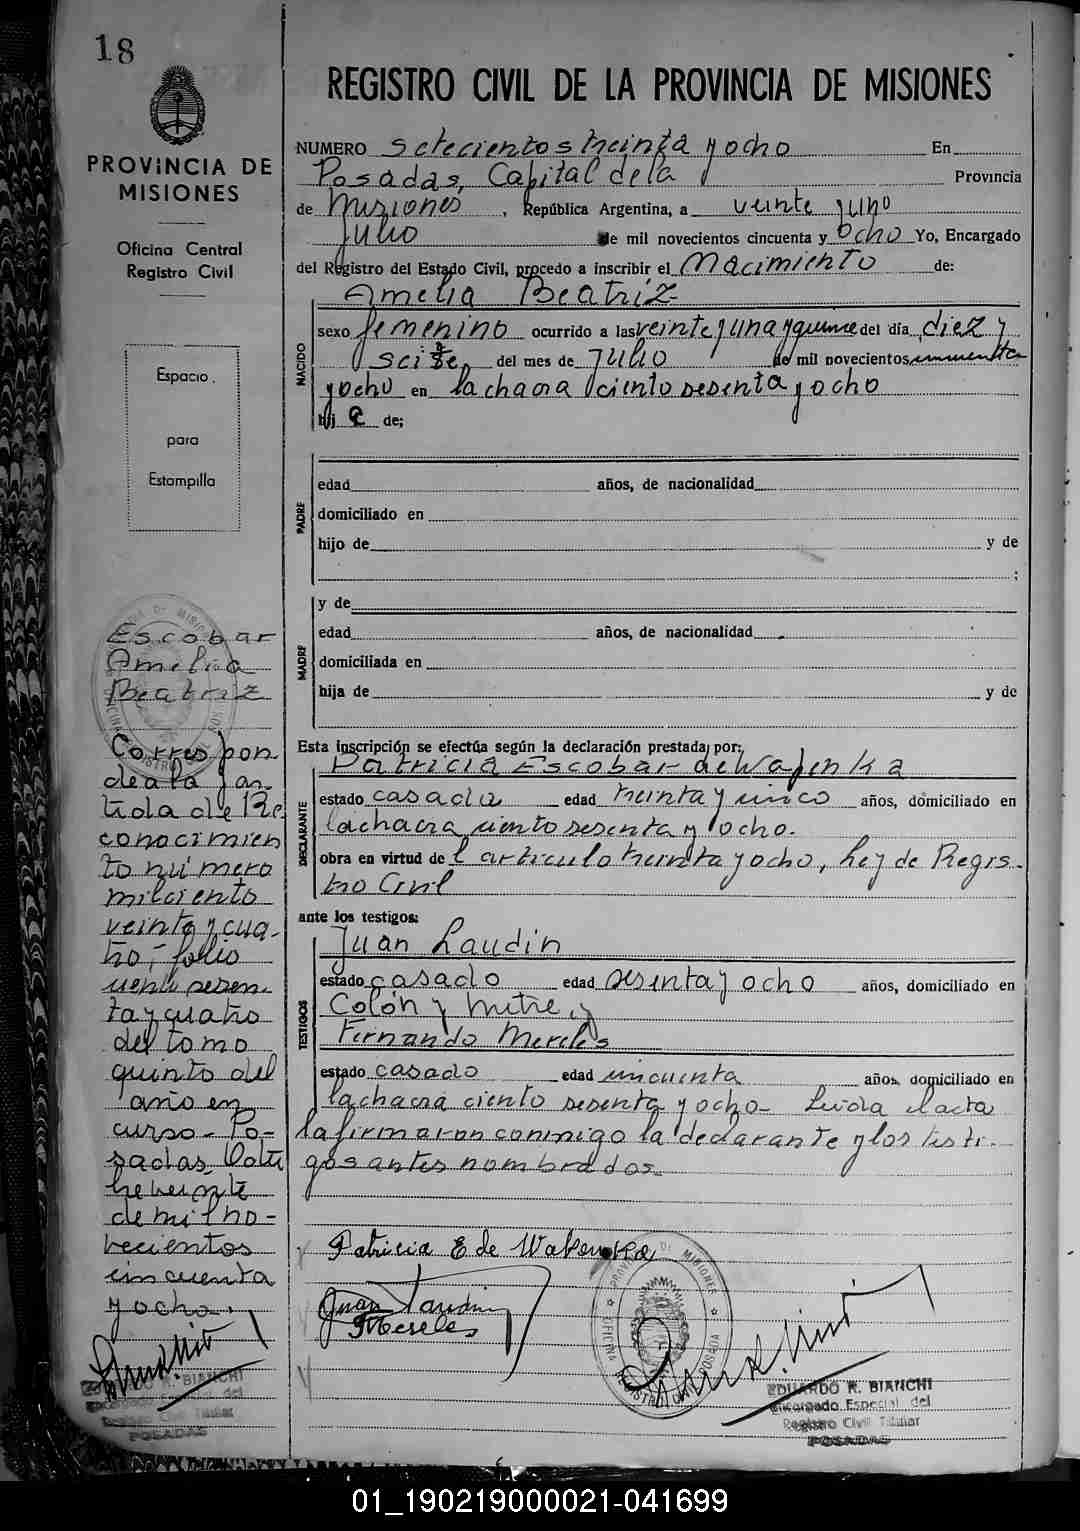 18
PROVINCIA DE
MISIONES
Oficina Central
Registro Civil
Espacio
para
Estampilla
Escobar
Amelia
Beatriz
Correspon
de a la par
tida de Re
conocimien
to número
mil ciento
veinte y cua-
tro, folio
ciento sesen
ta y cuatro
del tomo
quinto del
año en
curso - Po-
sadas, Octu
bre veinte
de mil no-
vecientos
cincuenta
y ocho.
REGISTRO CIVIL DE LA PROVINCIA DE MISIONES
NUMERO setecientos treinta y ocho En
Posadas, Capital de la Provincia
de Misiones, República Argentina, a veinte y uno
Julio de mil novecientos cincuenta y ocho Yo, Encargado
del Registro del Estado Civil, procedo a inscribir el Nacimiento de:
Amelia Beatriz
NACIDO
sexo femenino ocurrido a las veinte y una y quince del día diez y
seis del mes de Julio de mil novecientos cincuenta
y ocho en la chacra ciento sesenta y ocho
hij a de;
PADRE
edad años, de nacionalidad
domiciliado en
hijo de y de
;
MADRE
y de
edad años, de nacionalidad
domiciliada en
hija de y de
Esta inscripción se efectúa según la declaración prestada por:
Patricia Escobar de Wapenka
DECLARANTE
estado casada edad treinta y cinco años, domiciliado en
la chacra ciento sesenta y ocho.
obra en virtud de l artículo treinta y ocho, Ley de Regis-
tro Civil
ante los testigos:
TESTIGOS
Juan Laudin
estado casado edad sesenta y ocho años, domiciliado en
Colón y Mitre y
Fernando Mereles
estado casado edad cincuenta años, domiciliado en
la chacra ciento sesenta y ocho - Leida el acta
la firmaron conmigo la declarante y los testi-
gos antes nombrados.
Patricia E de Wapenka
Juan Laudin
F Mereles
EDUARDO R. BIANCHI
Encargado Especial del
Registro Civil Titular
POSADAS
EDUARDO R. BIANCHI
Encargado Especial del
Registro Civil Titular
POSADAS
01_190219000021-041699